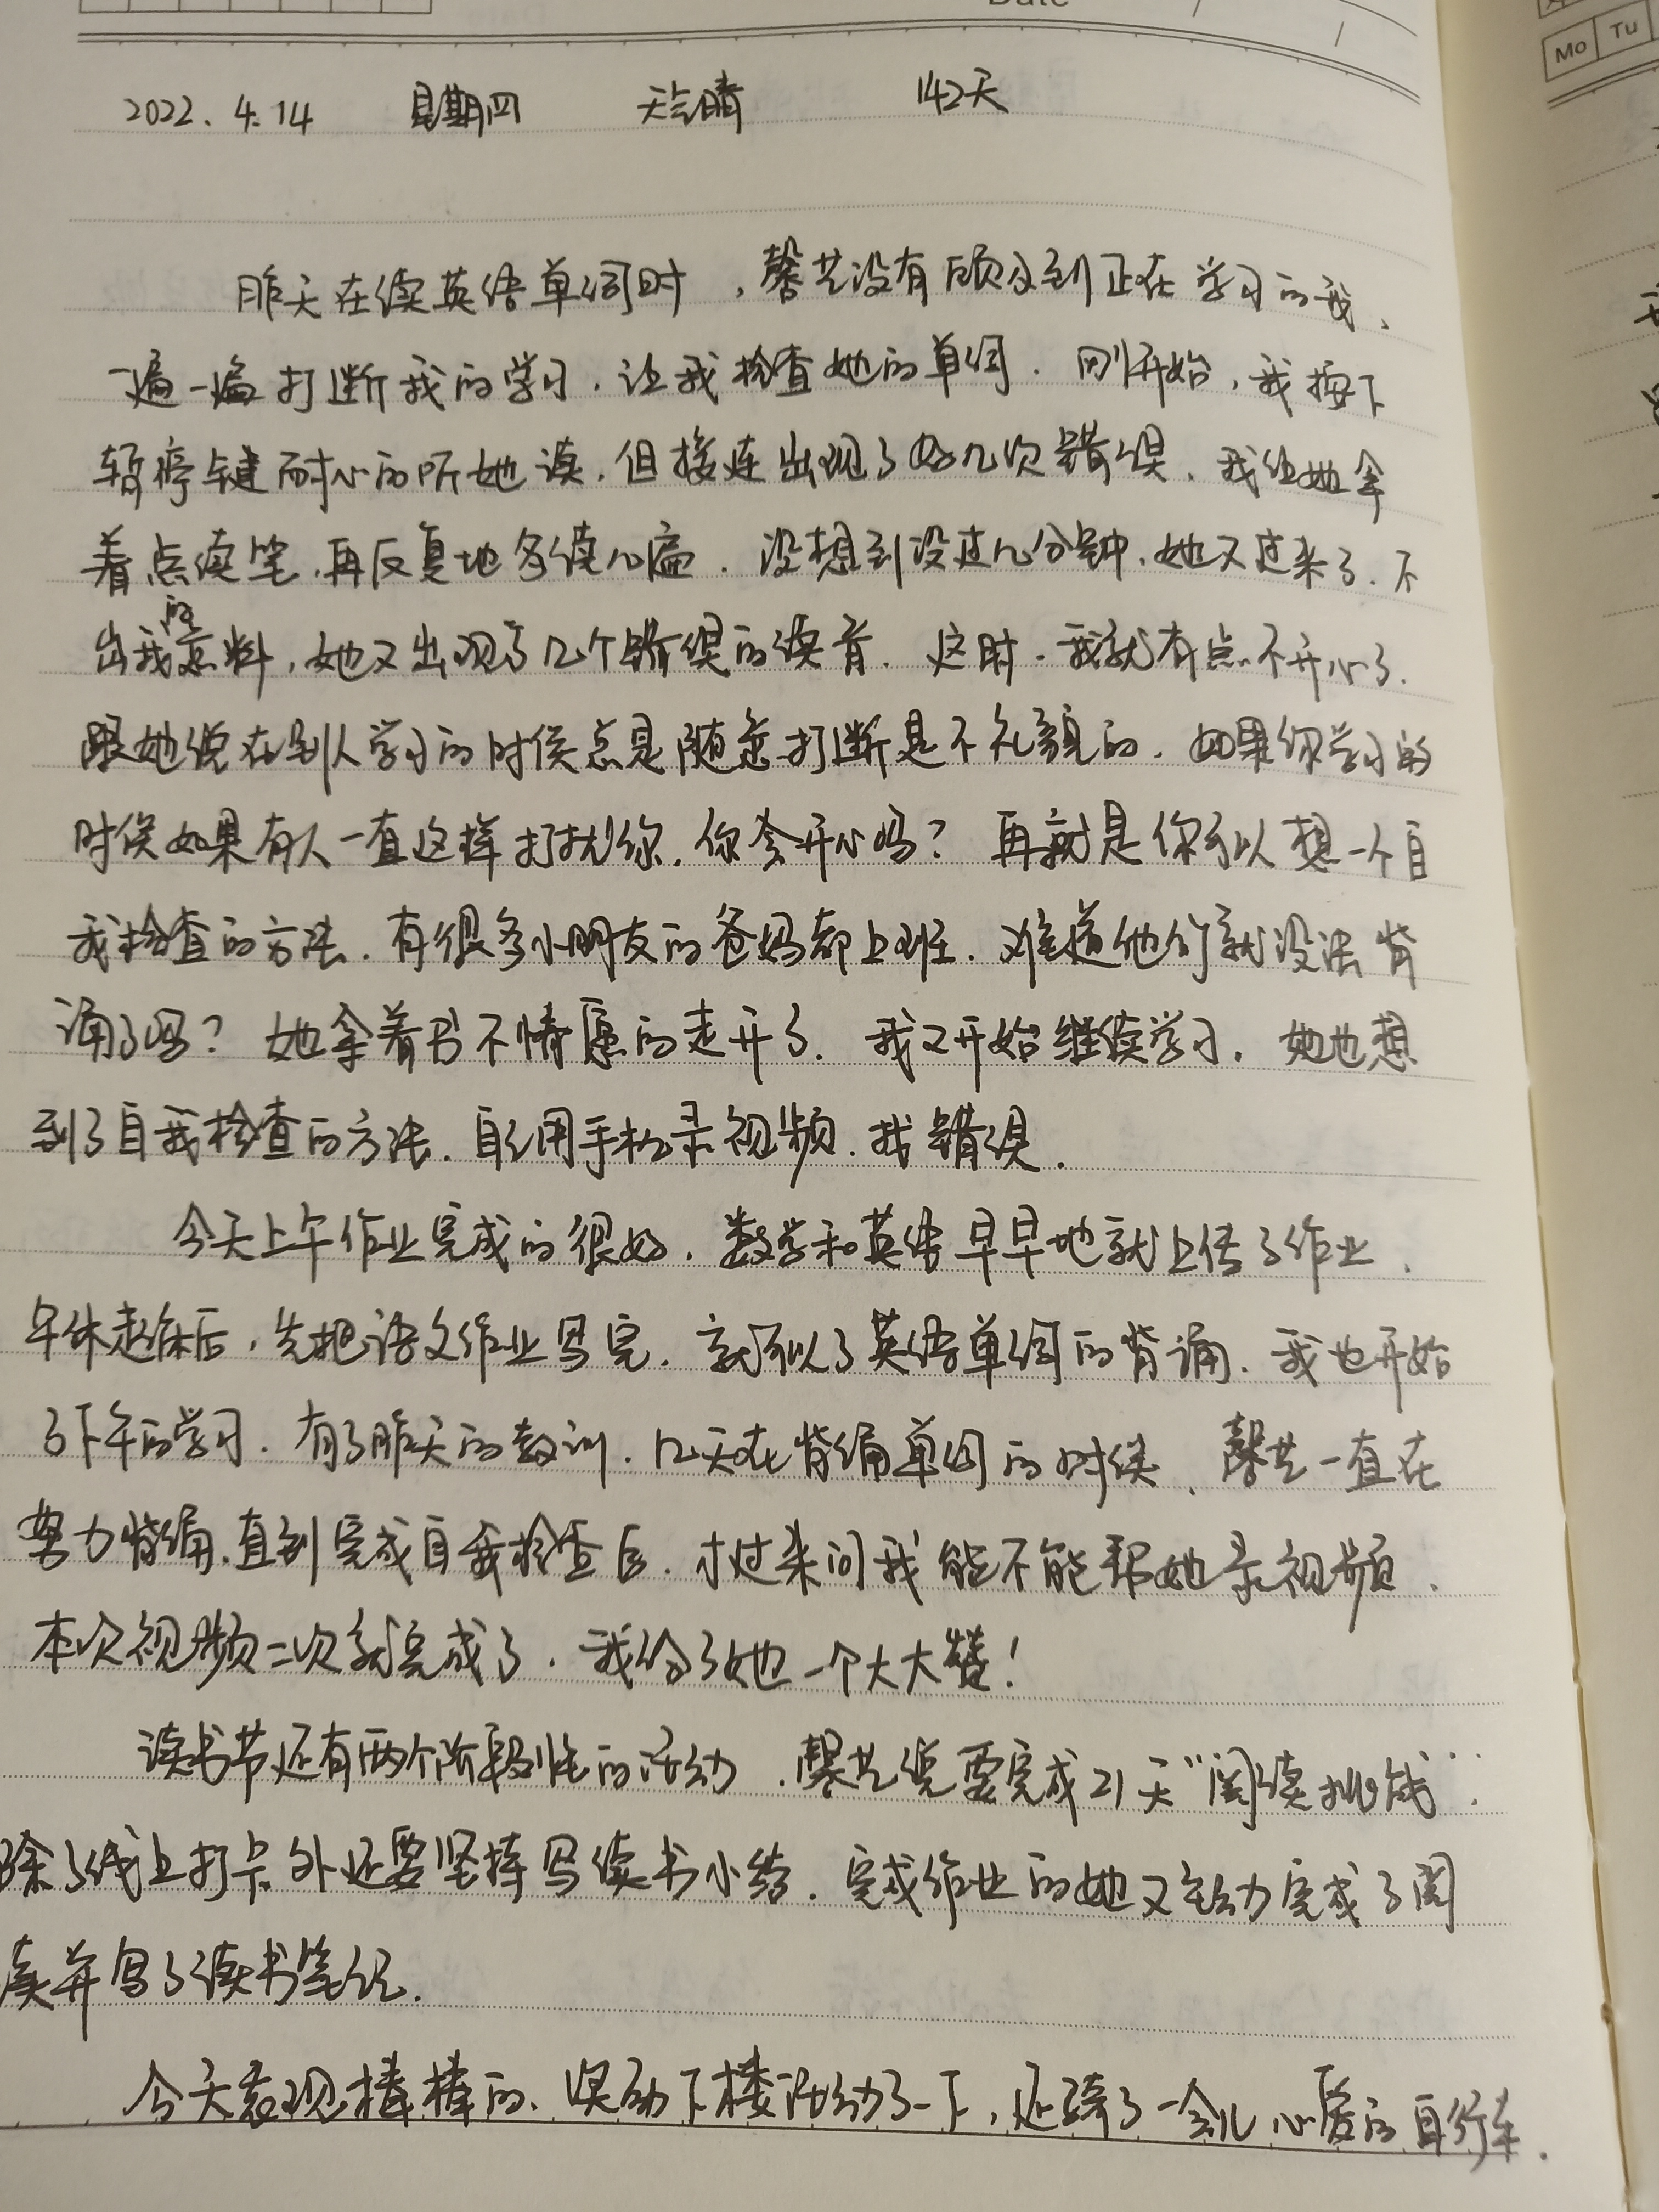 Date
Mo Tu
2022.4.14 星期四 天气晴 142天
昨天在读英语单词时，馨艺没有顾及到正在学习的我、
一遍一遍打断我的学习．让我检查她的单词．刚开始，我按下
暂停键耐心的听她读．但接连出现了好几次错误．我让她拿
着点读笔．再反复地多读几遍．没想到没过几分钟．她又过来了．不
出我的意料，她又出现了几个错误的读音．这时．我就有点不开心了．
跟她说在别人学习的时候总是随意打断是不礼貌的．如果你学习的
时候如果有人一直这样打扰你．你会开心吗？再就是你可以想一个自
我检查的方法．有很多小朋友的爸妈都上班．难道他们就没法背
诵了吗？她拿着书不情愿的走开了．我又开始继续学习．她也想
到了自我检查的方法．自己用手机录视频．找错误．
今天上午作业完成的很好．数学和英语早早地就上传了作业．
午休起床后，先把语文作业写完．就开始了英语单词的背诵．我也开始
了下午的学习．有了昨天的教训．今天在背诵单词的时候、馨艺一直在
努力背诵．直到完成自我检查后．才过来问我能不能帮她录视频．
本次视频二次就完成了．我给了她一个大大赞！
读书节还有两个阶段性的活动．馨艺说要完成21天“阅读挑战”．
除了线上打卡外还要坚持写读书小结．完成作业的她又主动完成了阅
读并写了读书笔记．
今天表现棒棒的．奖励下楼活动了一下，还骑了一会儿心爱的自行车．